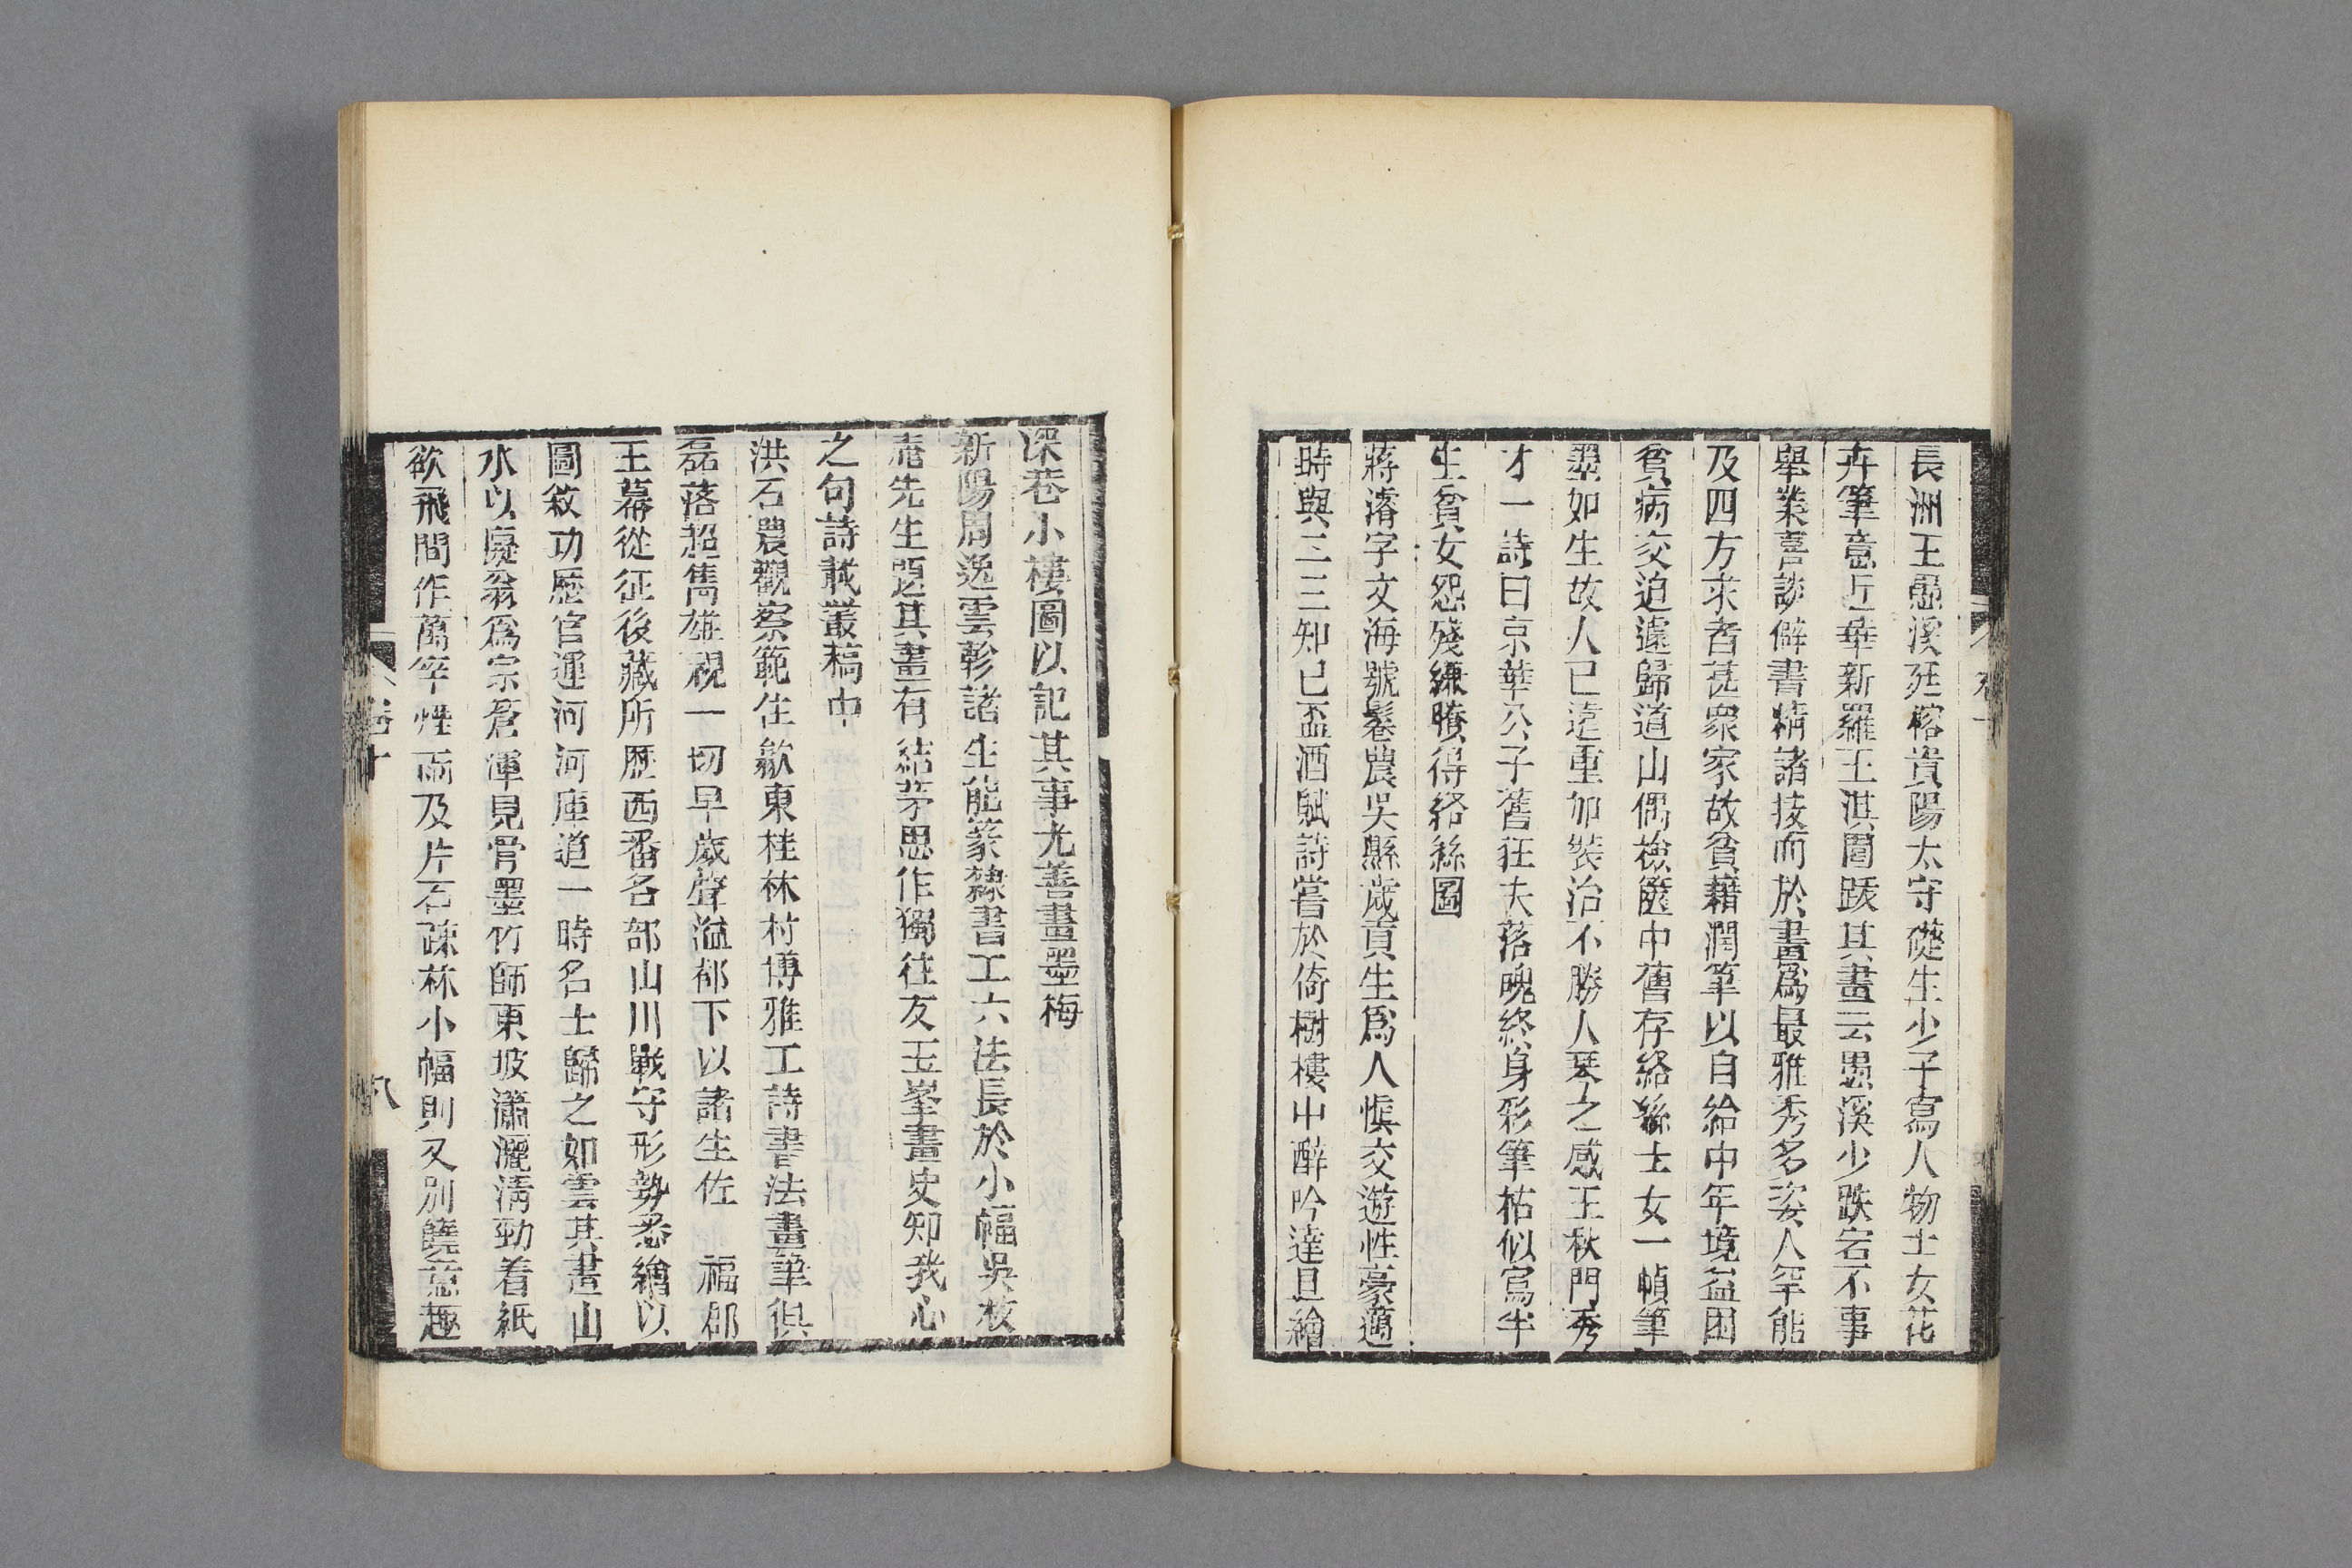 長洲王愚溪廷榕貴陽太守礎生少子寫人物士女花
卉筆意近華新羅王淇園跋其畫云愚溪少跌宕不事
舉業喜談僻書精諸技而於畫爲最雅秀多姿人罕能
及四方求者甚衆家故貧藉潤筆以自給中年境益困
貧病交迫遽歸道山偶檢篋中舊存絡絲士女一幀筆
墨如生故人已遠重加裝治不勝人琴之感王秋門秀
才一詩曰京華公子舊狂夫落魄終身彩筆枯似寫半
生貧女怨殘縑賸得絡絲圖
蔣濬字文海號鬈農吳縣歲貢生爲人愼交遊性豪適
時與二三知已盃酒賦詩嘗於倚樹樓中醉吟達旦繪
深巷小樓圖以記其事尤善畫墨梅
新陽周逸雲彰諸生能篆隸書工六法長於小幅吳枚
庵先生題其畫有結茅思作獨往友玉峯畫史知我心
之句詩載叢稿中
洪石農觀察範住歙東桂林村博雅工詩書法畫筆俱
磊落超雋雄視一切早歲聲溢都下以諸生佐 福郡
王幕從征後藏所歷西番各部山川戰守形勢悉繪以
圖敘功歷官運河河庫道一時名士歸之如雲其畫山
水以癡翁爲宗蒼渾見骨墨竹師東坡瀟灑淸勁着紙
欲飛間作萬竿烟雨及片石疎林小幅則又別饒意趣
卷十
八